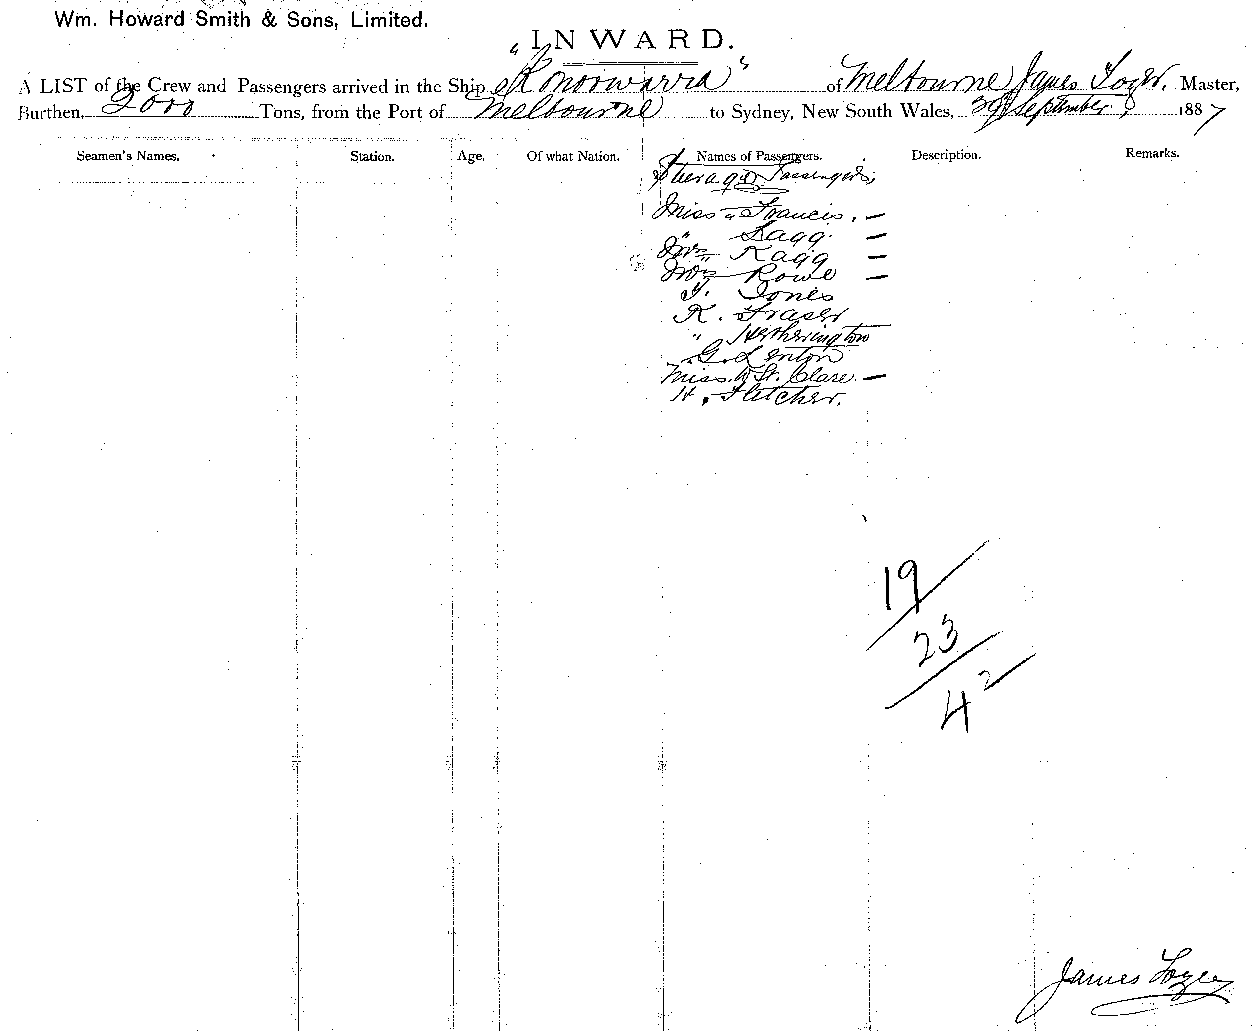 Wm. Howard Smith & Sons, Limited.
INWARD.
A LIST of the Crew and Passengers arrived in the Ship "Konoowarra" of Melbourne, James Tozer, Master,
Burthen, 2000 Tons, from the Port of Melbourne to Sydney, New South Wales, September 1887
Seamen's Names. Station. Age. Of what Nation. Names of Passengers. Description. Remarks.
Passengers
Miss Francis. —
" Lagg. —
Ragg —
Rowe —
T. Jones
K. Fraser
" Hetherington
G. Lenton
Miss St. Clare —
H. Fletcher.
19
23
42
James Tozer